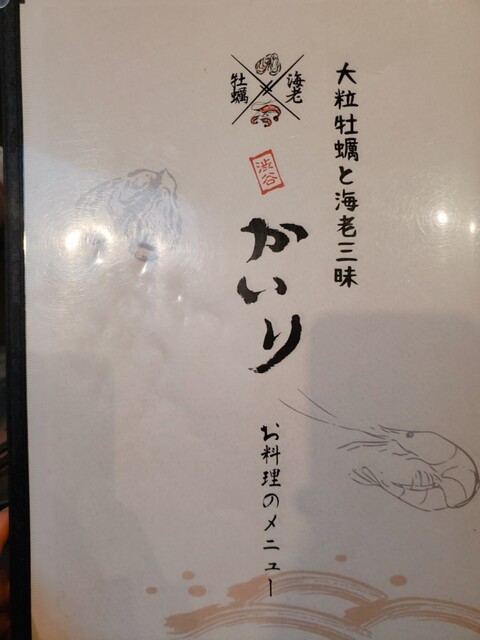 大粒牡蠣と海老三昧
海老
牡蠣
渋谷
かいり
お料理のメニュー